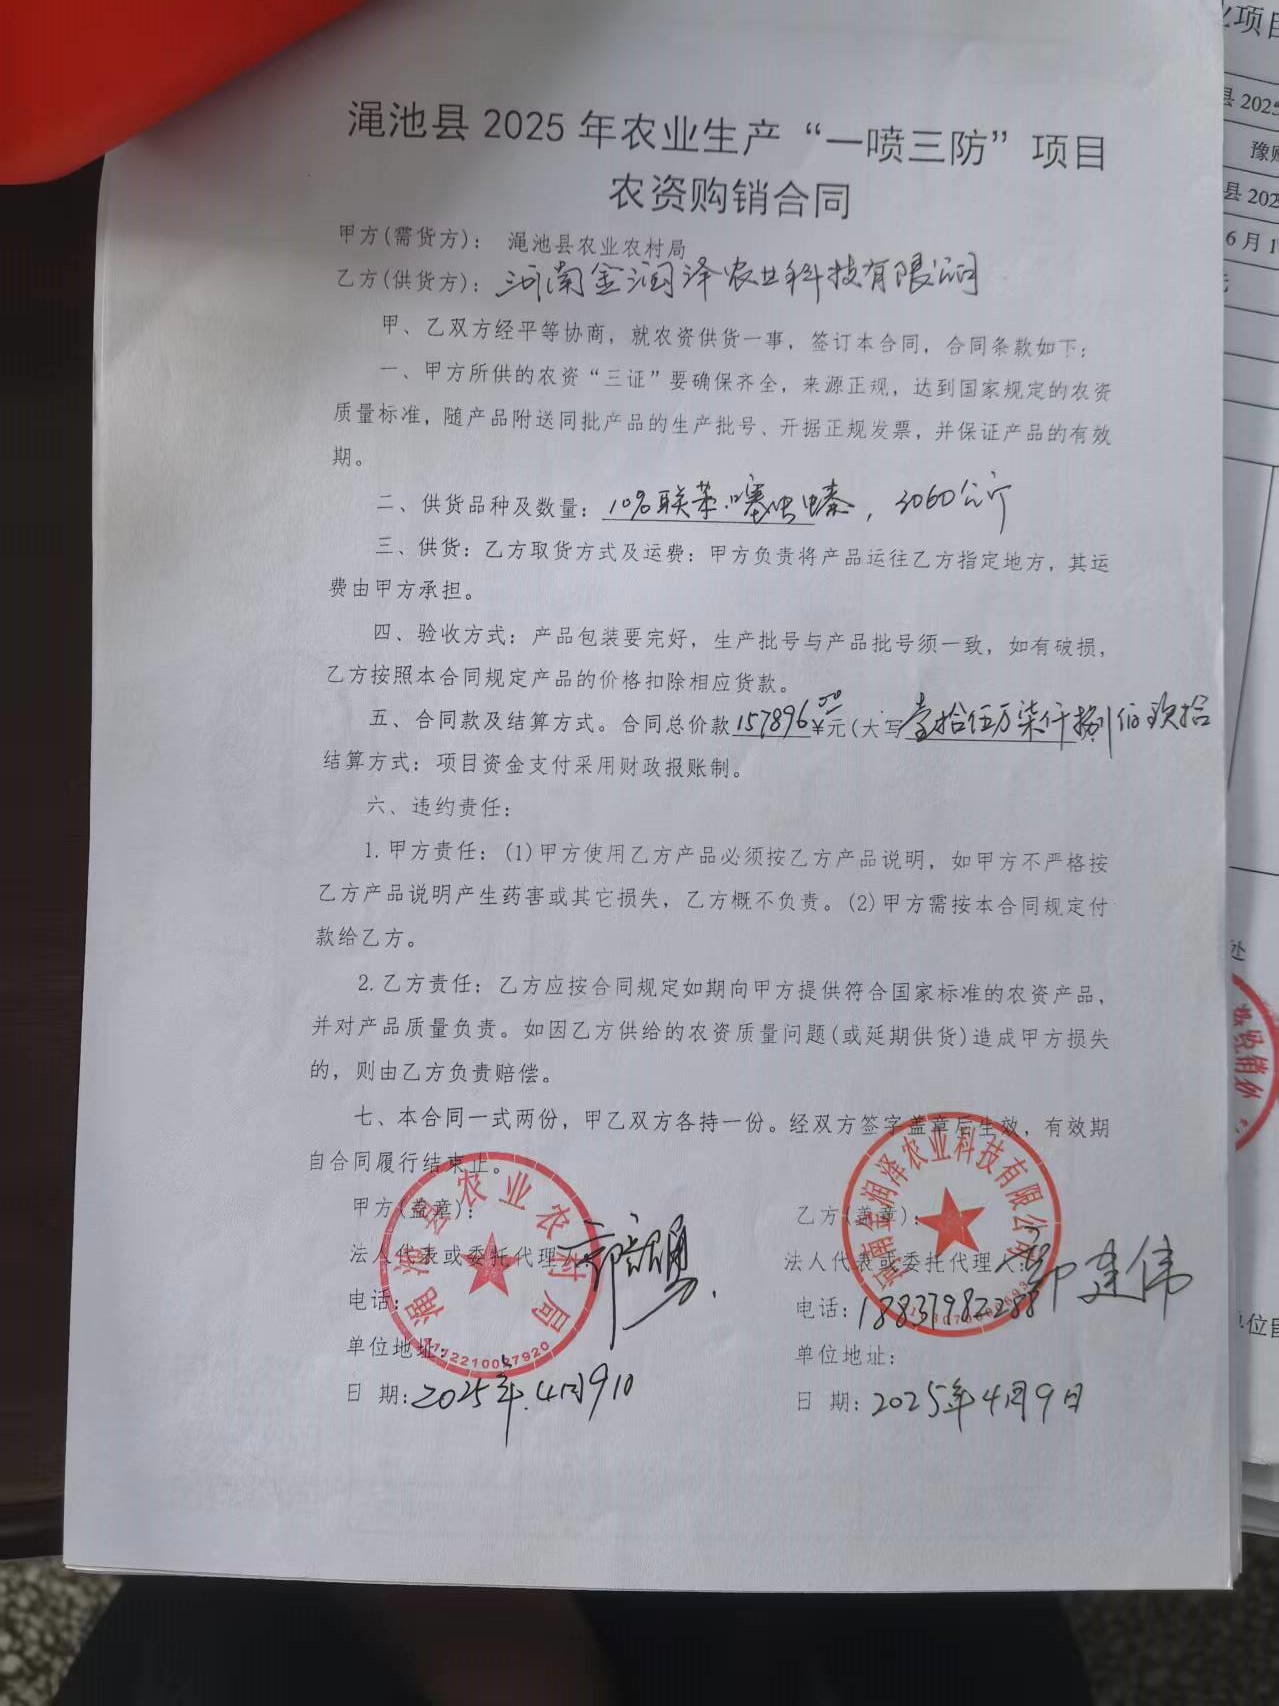 渑池县 2025 年农业生产“一喷三防”项目
农资购销合同
甲方(需货方)： 渑池县农业农村局
乙方(供货方)：河南金润泽农业科技有限公司
甲、乙双方经平等协商，就农资供货一事，签订本合同，合同条款如下：
一、甲方所供的农资“三证”要确保齐全，来源正规，达到国家规定的农资
质量标准，随产品附送同批产品的生产批号、开据正规发票，并保证产品的有效
期。
二、供货品种及数量：10%联苯·噻虫嗪，3060公斤
三、供货：乙方取货方式及运费：甲方负责将产品运往乙方指定地方，其运
费由甲方承担。
四、验收方式：产品包装要完好，生产批号与产品批号须一致，如有破损，
乙方按照本合同规定产品的价格扣除相应货款。
五、合同款及结算方式。合同总价款157896.00¥元(大写壹拾伍万柒仟捌佰玖拾
结算方式：项目资金支付采用财政报账制。
六、违约责任：
1.甲方责任：(1)甲方使用乙方产品必须按乙方产品说明，如甲方不严格按
乙方产品说明产生药害或其它损失，乙方概不负责。(2)甲方需按本合同规定付
款给乙方。
2.乙方责任：乙方应按合同规定如期向甲方提供符合国家标准的农资产品，
并对产品质量负责。如因乙方供给的农资质量问题(或延期供货)造成甲方损失
的，则由乙方负责赔偿。
七、本合同一式两份，甲乙双方各持一份。经双方签字盖章后生效，有效期
自合同履行结束止。
甲方(盖章)：
法人代表或委托代理
电话：
单位地址：
日 期：2025年.4月9日
渑池县农业农村局
乙方(盖章)：
法人代表或委托代理人：郭建伟
电话：18837982288
单位地址：
日 期：2025年4月9日
河南金润泽农业科技有限公司
化项目
县 2025
豫财
县 202
6 月 1
元
处
经销
单位自